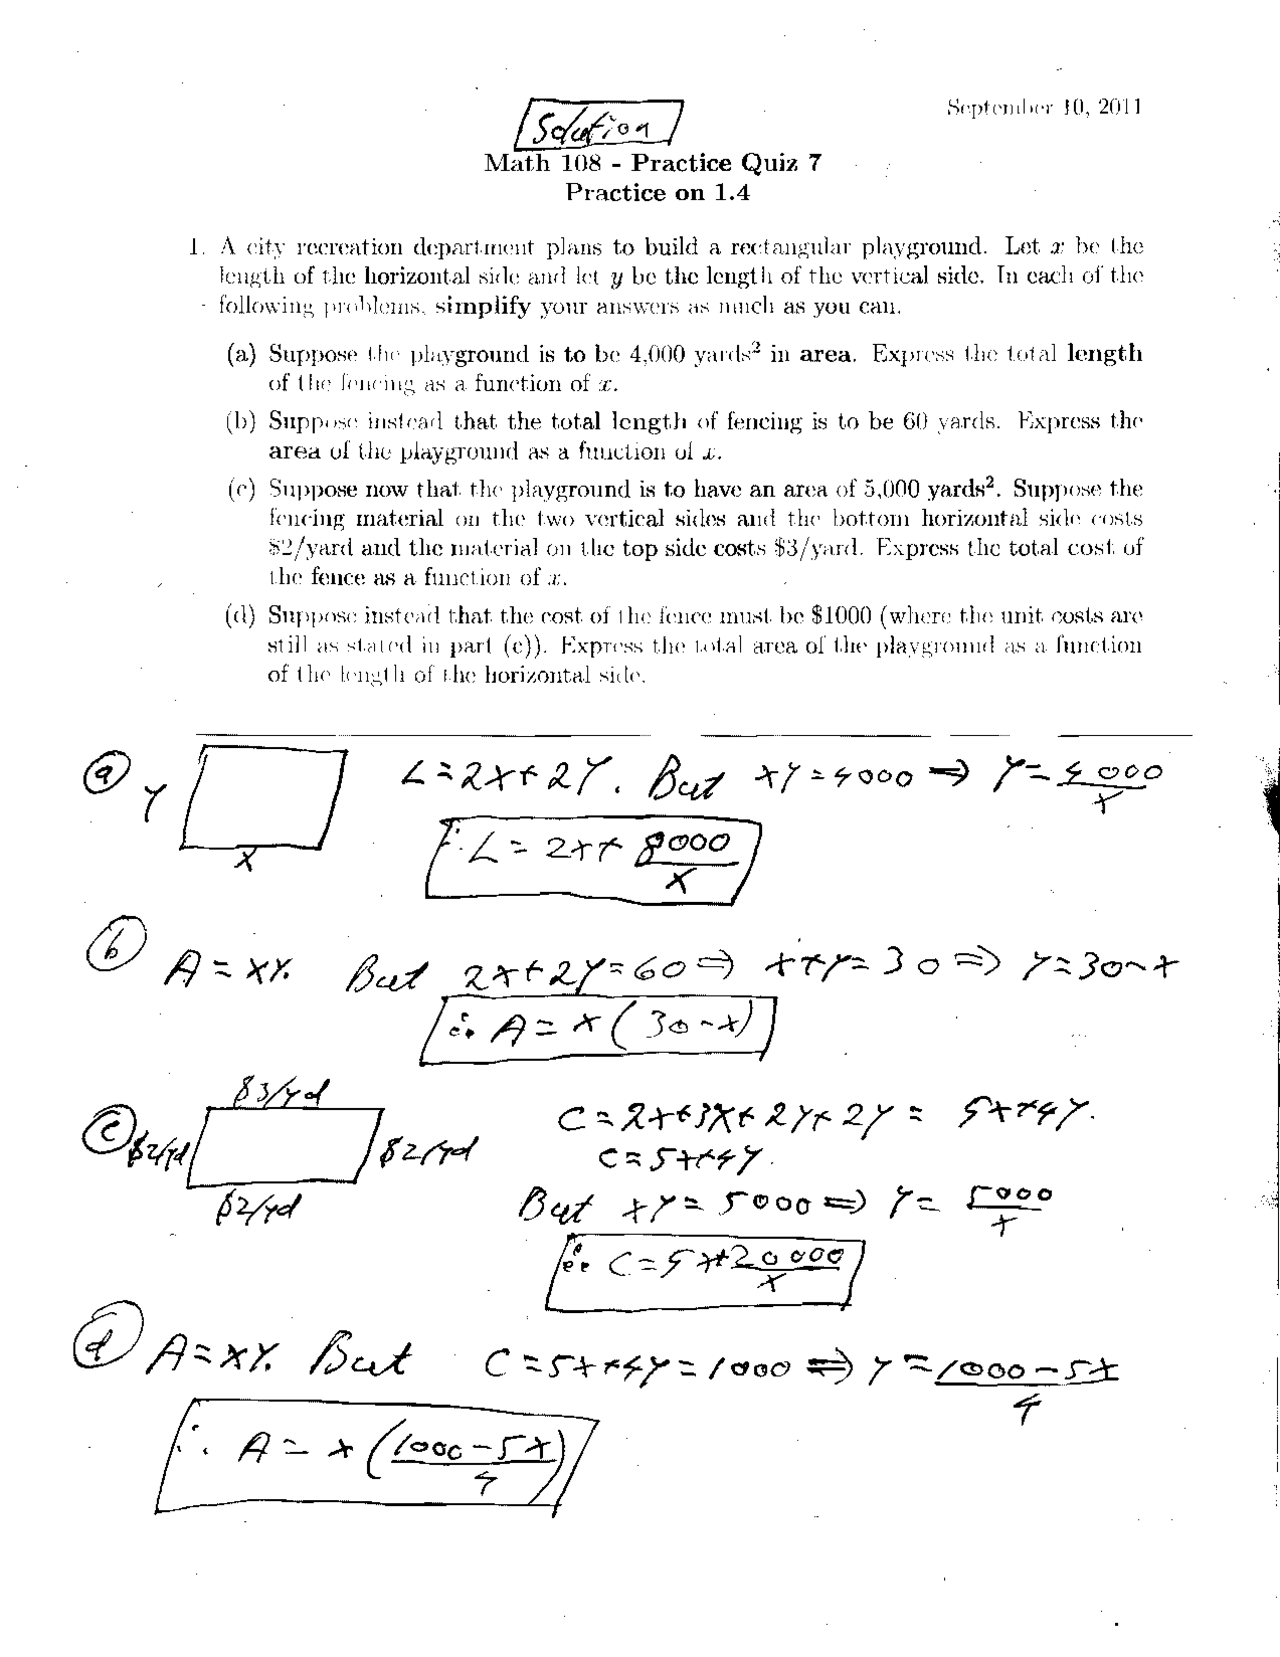 September 10, 2011
Solution
Math 108 - Practice Quiz 7
Practice on 1.4
1. A city recreation department plans to build a rectangular playground. Let x be the
length of the horizontal side and let y be the length of the vertical side. In each of the
following problems, simplify your answers as much as you can.
(a) Suppose the playground is to be 4,000 yards² in area. Express the total length
of the fencing as a function of x.
(b) Suppose instead that the total length of fencing is to be 60 yards. Express the
area of the playground as a function of x.
(c) Suppose now that the playground is to have an area of 5,000 yards². Suppose the
fencing material on the two vertical sides and the bottom horizontal side costs
$2/yard and the material on the top side costs $3/yard. Express the total cost of
the fence as a function of x.
(d) Suppose instead that the cost of the fence must be $1000 (where the unit costs are
still as stated in part (c)). Express the total area of the playground as a function
of the length of the horizontal side.
(a) y x L = 2x + 2y. But xy = 4000 ⇒ y = 4000/x
∴ L = 2x + 8000/x
(b) A = xy. But 2x + 2y = 60 ⇒ x + y = 30 ⇒ y = 30 - x
∴ A = x(30 - x)
$3/yd
(c) $2/yd $2/yd C = 2x + 3x + 2y + 2y = 5x + 4y.
C = 5x + 4y.
$2/yd But xy = 5000 ⇒ y = 5000/x
∴ C = 5x + 20000/x
(d) A = xy. But C = 5x + 4y = 1000 ⇒ y = (1000 - 5x)/4
∴ A = x((1000 - 5x)/4)